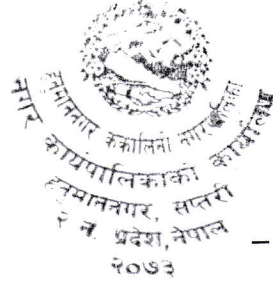 हनुमाननगर कंकालिनी नगरपालिका
नगर कार्यपालिकाको कार्यालय
हनुमाननगर, सप्तरी
२ नं. प्रदेश, नेपाल
२०७३